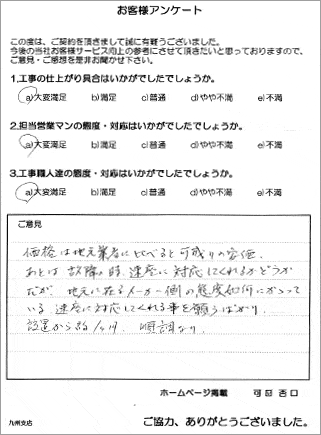 お客様アンケート
この度は、ご契約を頂きまして誠に有難うございました。
今後の当社お客様サービス向上の参考にさせて頂きたいと思っておりますので、
ご意見・ご感想を是非お聞かせ下さい。
1.工事の仕上がり具合はいかがでしたでしょうか。
a)大変満足 b)満足 c)普通 d)やや不満 e)不満
2.担当営業マンの態度・対応はいかがでしたでしょうか。
a)大変満足 b)満足 c)普通 d)やや不満 e)不満
3.工事職人達の態度・対応はいかがでしたでしょうか。
a)大変満足 b)満足 c)普通 d)やや不満 e)不満
ご意見
価格は地元業者にくらべると可成りの安価。
あとは故障の時、速座に対応してくれるかどうか
だが、地元に在るメーカー側の態度如何にかかって
いる。速座に対応してくれる事を願うばかり。
設置から 1ヶ月、順調なり。
ホームページ掲載 可 否
九州支店
ご協力、ありがとうございました。